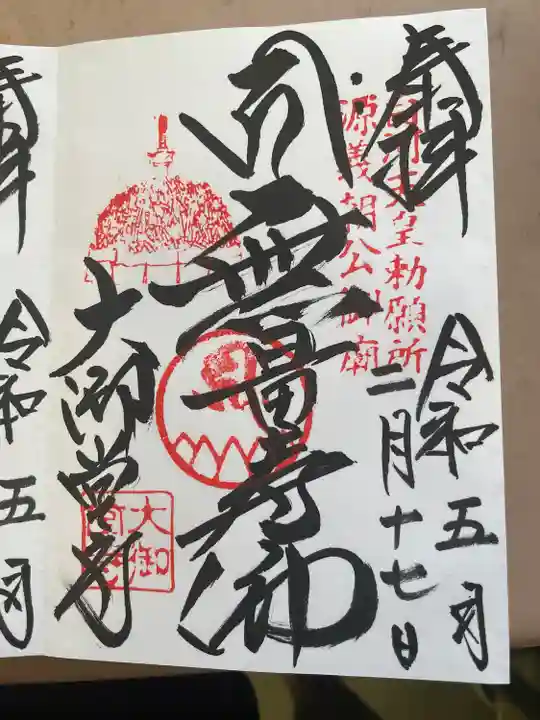 奉拝
白河天皇勅願所
源義朝公御廟
令和五年
二月十七日
無量寿仏
大御堂寺
大御
奉拝
令和五年